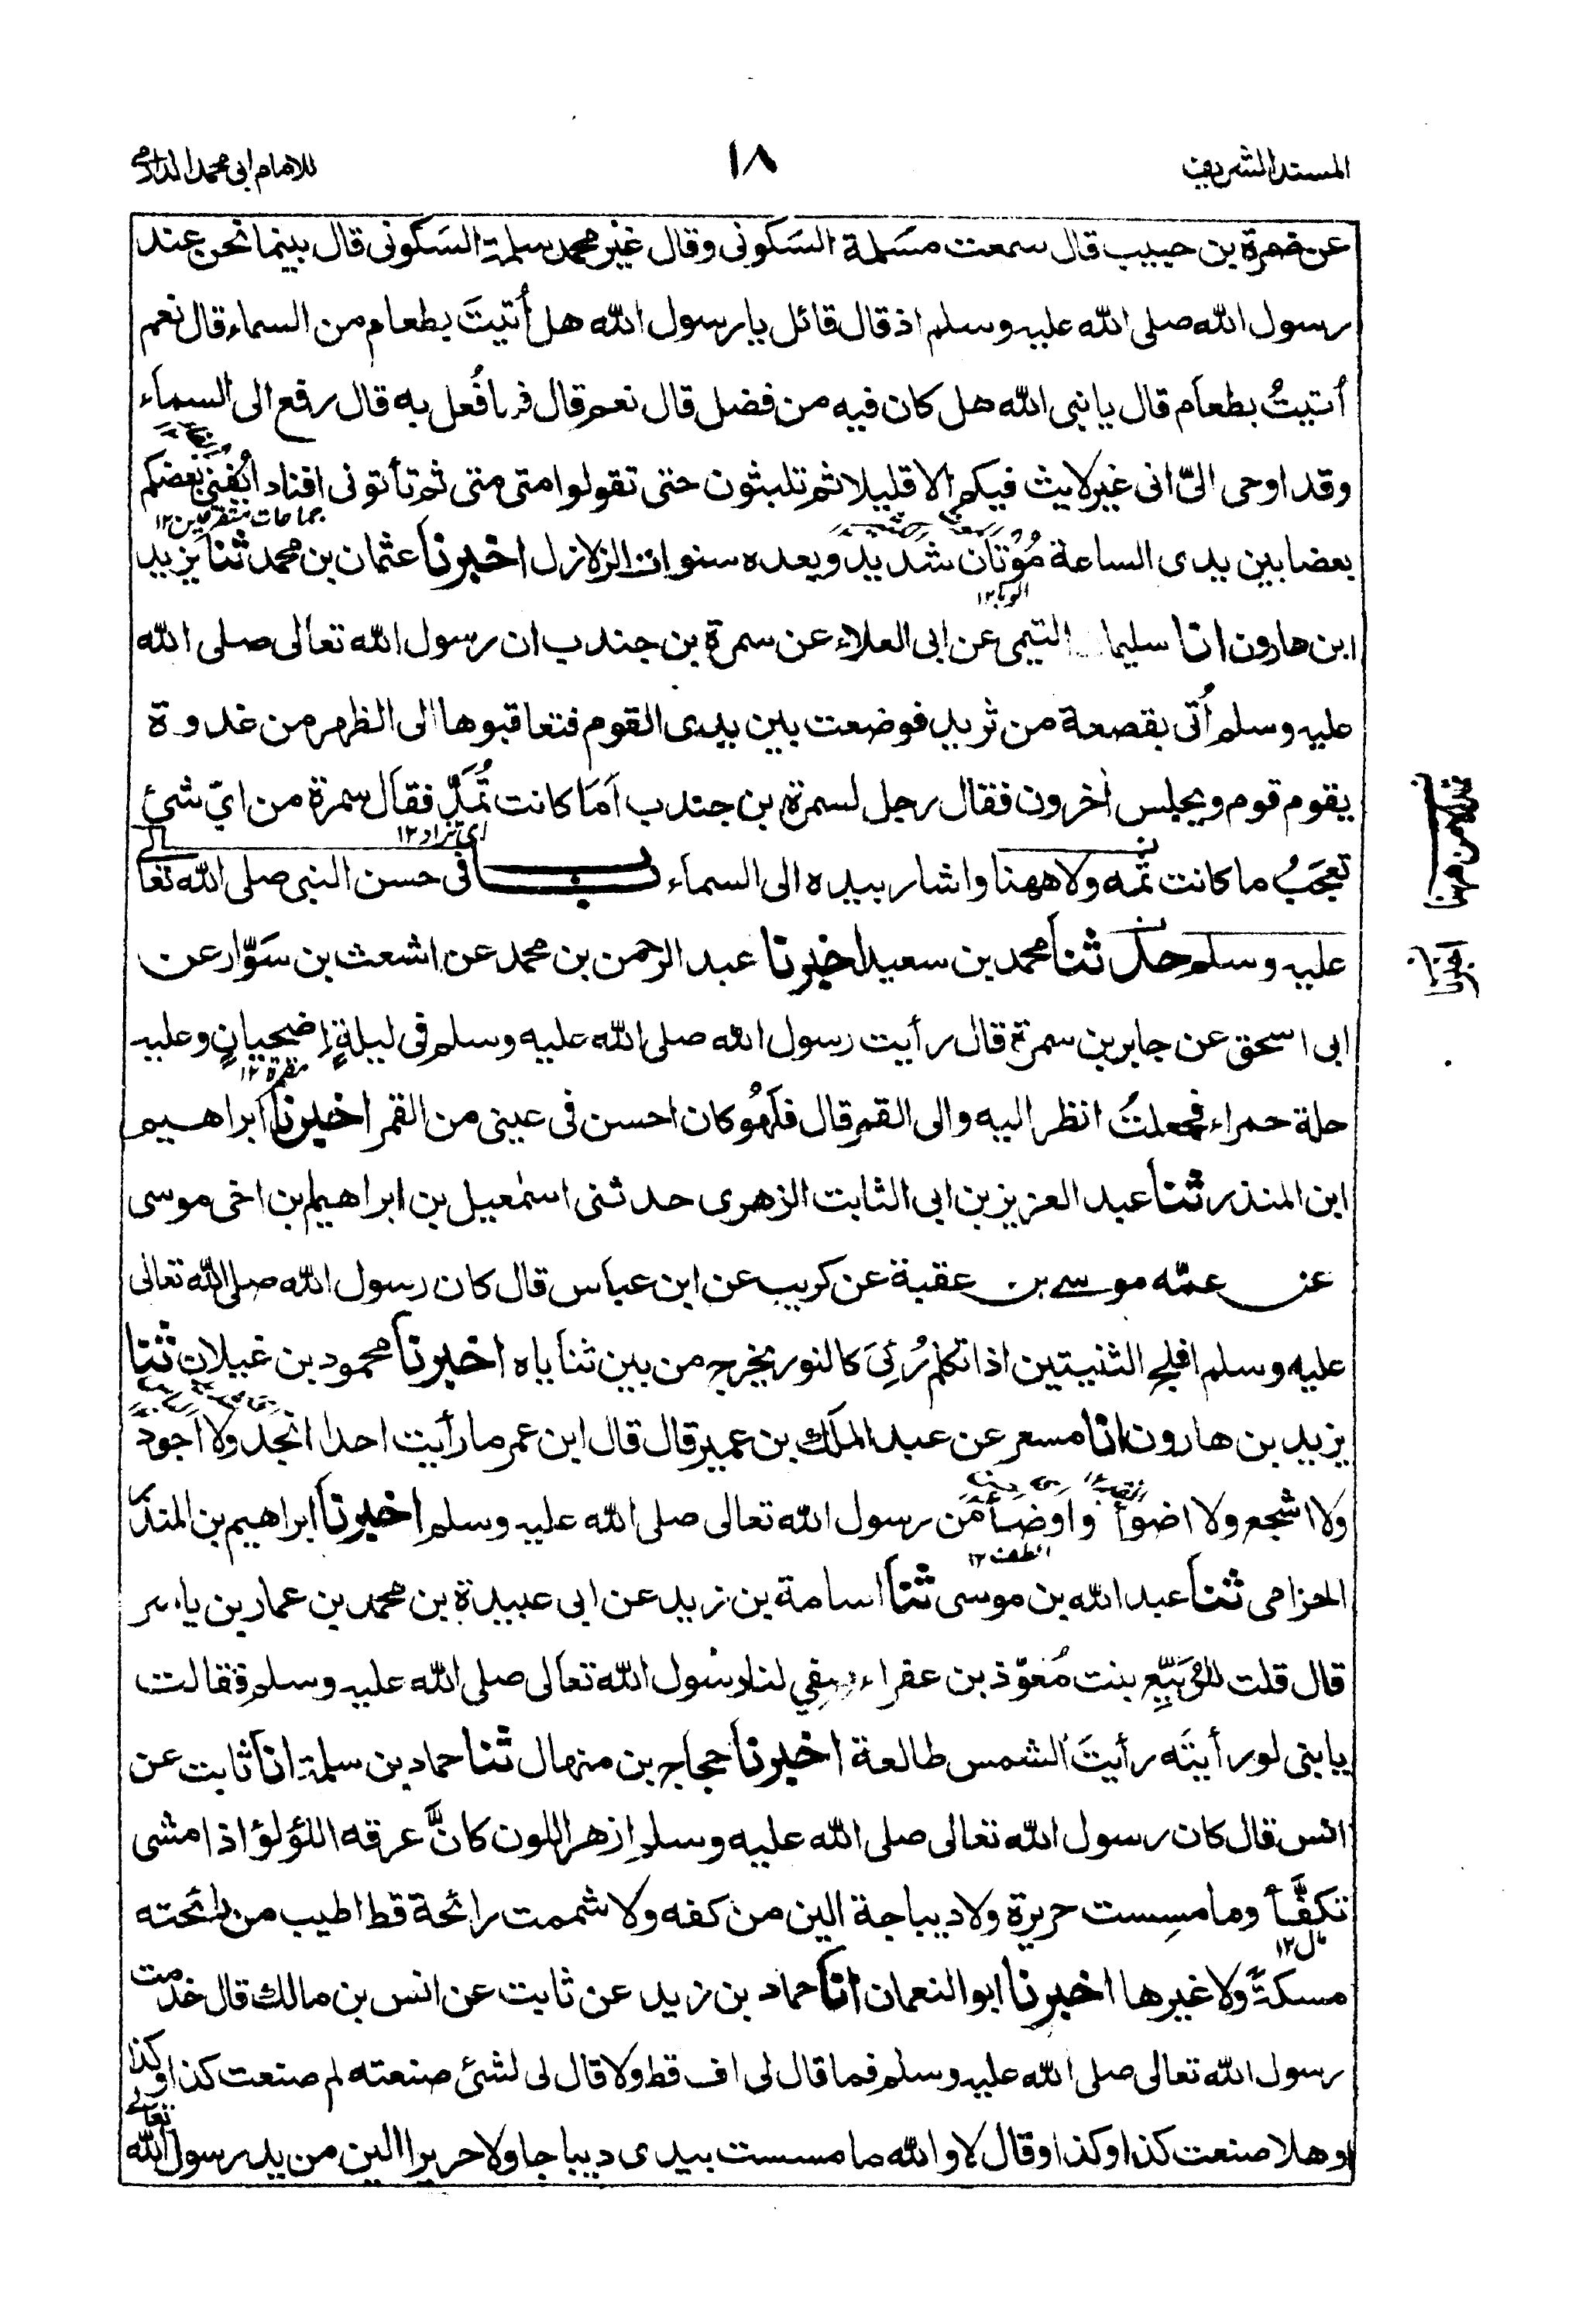 المسند الشريف
١٨
للامام ابى محمد الدارمى
عن ضمرة بن حبيب قال سمعت مسلمة السكونى وقال غير محمد سلمة السكونى قال بينما نحن عند
رسول الله صلى الله عليه وسلم اذ قال قائل يا رسول الله هل أُتيتَ بطعام من السماء قال نعم
أُتيتُ بطعام قال يا نبى الله هل كان فيه من فضل قال نعم قال فما فُعل به قال رفع الى السماء
وقد اوحى الىّ انى غير لابث فيكم الا قليلا ثم تلبثون حتى تقولوا متى متى ثم تأتونى افنادا يُفنى بعضكم
جماعات متفرقين ١٢
بعضا بين يدى الساعة مُوْتان شديد وبعده سنوات الزلازل اخبرنا عثمان بن محمد ثنا يزيد
الوبا ١٢
ابن هارون انا سليمان التيمى عن ابى العلاء عن سمرة بن جندب ان رسول الله تعالى صلى الله
عليه وسلم أُتى بقصعة من ثريد فوضعت بين يدى القوم فتعاقبوها الى الظهر من غدوة
يقوم قوم ويجلس أخرون فقال رجل لسمرة بن جندب أمَا كانت تُمَدّ فقال سمرة من اىّ شئ
اى تزاد ١٢
تعجَبُ ما كانت تمد ولا ههنا واشار بيده الى السماء باب فى حسن النبى صلى الله تعالى
عليه وسلم حدثنا محمد بن سعيد اخبرنا عبد الرحمن بن محمد عن اشعث بن سَوّار عن
ابى اسحق عن جابر بن سمرة قال رأيت رسول الله صلى الله عليه وسلم فى ليلةٍ اِضحيانٍ وعليه
مقمرة ١٢
حلة حمراء فجعلتُ انظر اليه والى القمر قال فلَهُوَ كان احسن فى عينى من القمر اخبرنا ابراهيم
ابن المنذر ثنا عبد العزيز بن ابى الثابت الزهرى حدثنى اسمٰعيل بن ابراهيم بن اخى موسى
عن عمّه موسى بن عقبة عن كريب عن ابن عباس قال كان رسول الله صلى الله تعالى
عليه وسلم افلج الثنيتين اذا تكلم رُئِىَ كالنور يخرج من بين ثناياه اخبرنا محمود بن غيلان ثنا
يزيد بن هارون انا مسعر عن عبد الملك بن عمير قال قال ابن عمر ما رأيت احدا انجد ولا اجود
ولا اشجع ولا اضوأ واوضأ من رسول الله تعالى صلى الله عليه وسلم اخبرنا ابراهيم بن المنذر
الحزامى ثنا عبد الله بن موسى ثنا اسامة بن زيد عن ابى عبيدة بن محمد بن عمار بن ياسر
قال قلت للرُبَيِّع بنت مُعوّذ بن عفراء صِفي لنا رسول الله تعالى صلى الله عليه وسلم فقالت
يا بنى لو رأيتَه رأيتَ الشمس طالعة اخبرنا حجاج بن منهال ثنا حماد بن سلمة انا ثابت عن
انس قال كان رسول الله تعالى صلى الله عليه وسلم ازهر اللون كانَّ عرقه اللؤلؤ اذا مشى
تكفَّأ وما مسِست حريرة ولا ديباجة الين من كفه ولا شممت رائحة قط اطيب من رائحته
مال ١٢
مسكةً ولا غيرها اخبرنا ابو النعمان انا حماد بن زيد عن ثابت عن انس بن مالك قال خدمت
رسول الله تعالى صلى الله عليه وسلم فما قال لى اف قط ولا قال لى لشئ صنعته لم صنعت كذا وكذا
او هلا صنعت كذا وكذا وقال لا والله ما مسست بيدى ديباجا ولا حريرا الين من يد رسول الله تعالى
اخبرنا